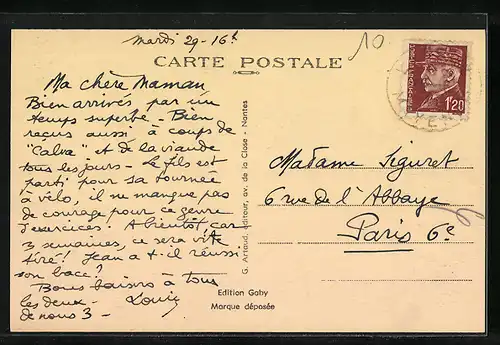 mardi 29-16h
10
CARTE POSTALE
Ma chère Maman
Bien arrivés par un
temps superbe - Bien
reçus aussi à coups de
"Calva" et de la viande
tous les jours - Le fils est
parti pour sa tournée
à vélo, il ne manque pas
de courage pour ce genre
d'exercices. A bientôt, car
3 semaines, ce sera vite
tiré! Jean a-t-il réussi
son bacc?
Bons baisers à tous
les deux - Louis
de nous 3 -
G. Artaud, éditeur, av. de la Close - Nantes
Edition Gaby
Marque déposée
1f20
Madame Siguret
6 rue de l'Abbaye
Paris 6e